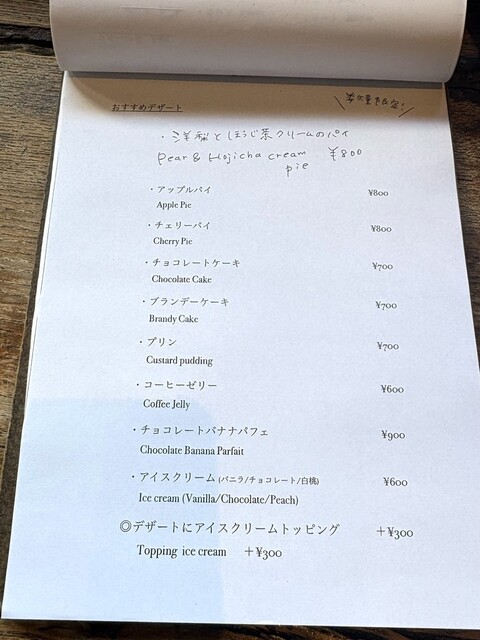 おすすめデザート
数量限定!
・洋梨とほうじ茶クリームのパイ
Pear & Hojicha cream ¥800
pie
・アップルパイ ¥800
Apple Pie
・チェリーパイ ¥800
Cherry Pie
・チョコレートケーキ ¥700
Chocolate Cake
・ブランデーケーキ ¥700
Brandy Cake
・プリン ¥700
Custard pudding
・コーヒーゼリー ¥600
Coffee Jelly
・チョコレートバナナパフェ ¥900
Chocolate Banana Parfait
・アイスクリーム (バニラ/チョコレート/白桃) ¥600
Ice cream (Vanilla/Chocolate/Peach)
◎デザートにアイスクリームトッピング +¥300
Topping ice cream +¥300